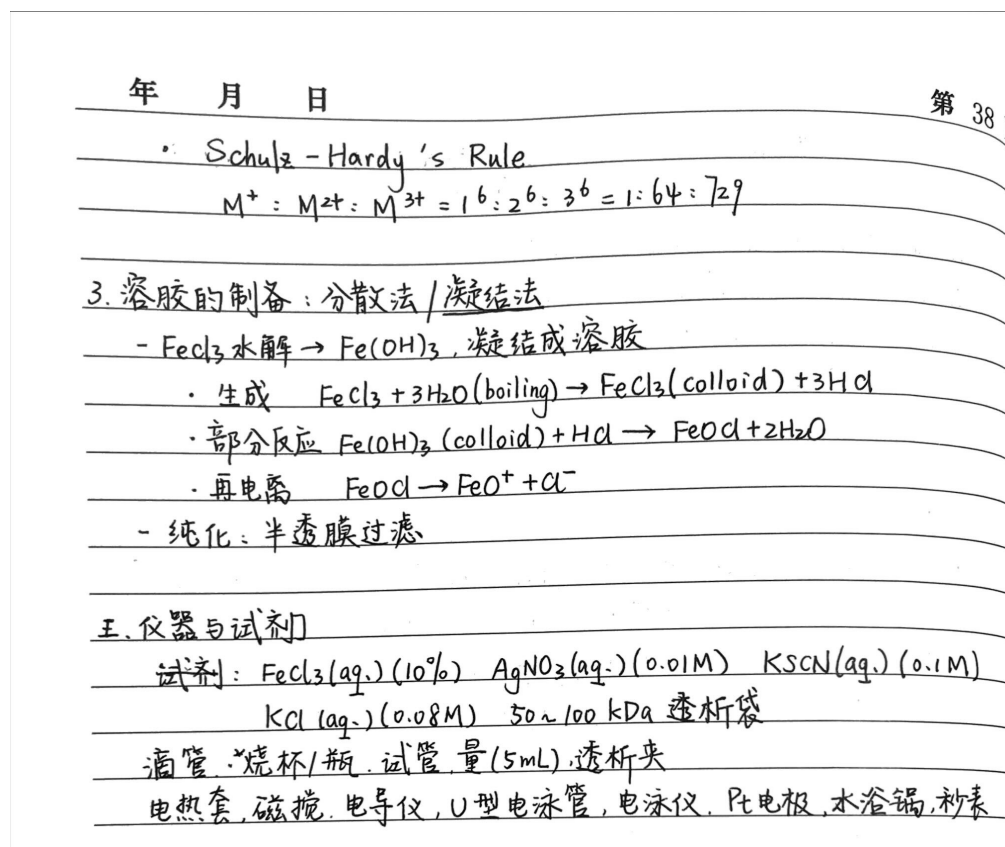 年 月 日
第 38
· Schulz-Hardy's Rule
M⁺ : M²⁺ : M³⁺ = 1⁶ : 2⁶ : 3⁶ = 1 : 64 : 729
3. 溶胶的制备：分散法/凝结法
- FeCl₃水解 → Fe(OH)₃，凝结成溶胶
· 生成 FeCl₃ + 3H₂O (boiling) → FeCl₃ (colloid) + 3HCl
· 部分反应 Fe(OH)₃ (colloid) + HCl → FeOCl + 2H₂O
· 再电离 FeOCl → FeO⁺ + Cl⁻
- 纯化：半透膜过滤
三、仪器与试剂
试剂：FeCl₃(aq.)(10%) AgNO₃(aq.)(0.01M) KSCN(aq.)(0.1M)
KCl (aq.)(0.08M) 50~100 kDa 透析袋
滴管. 烧杯/瓶. 试管, 量(5mL), 透析夹
电热套, 磁搅. 电导仪, U型电泳管, 电泳仪. Pt电极, 水浴锅, 秒表